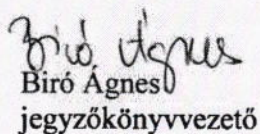 Biró Ágnes
Biró Ágnes
jegyzőkönyvvezető